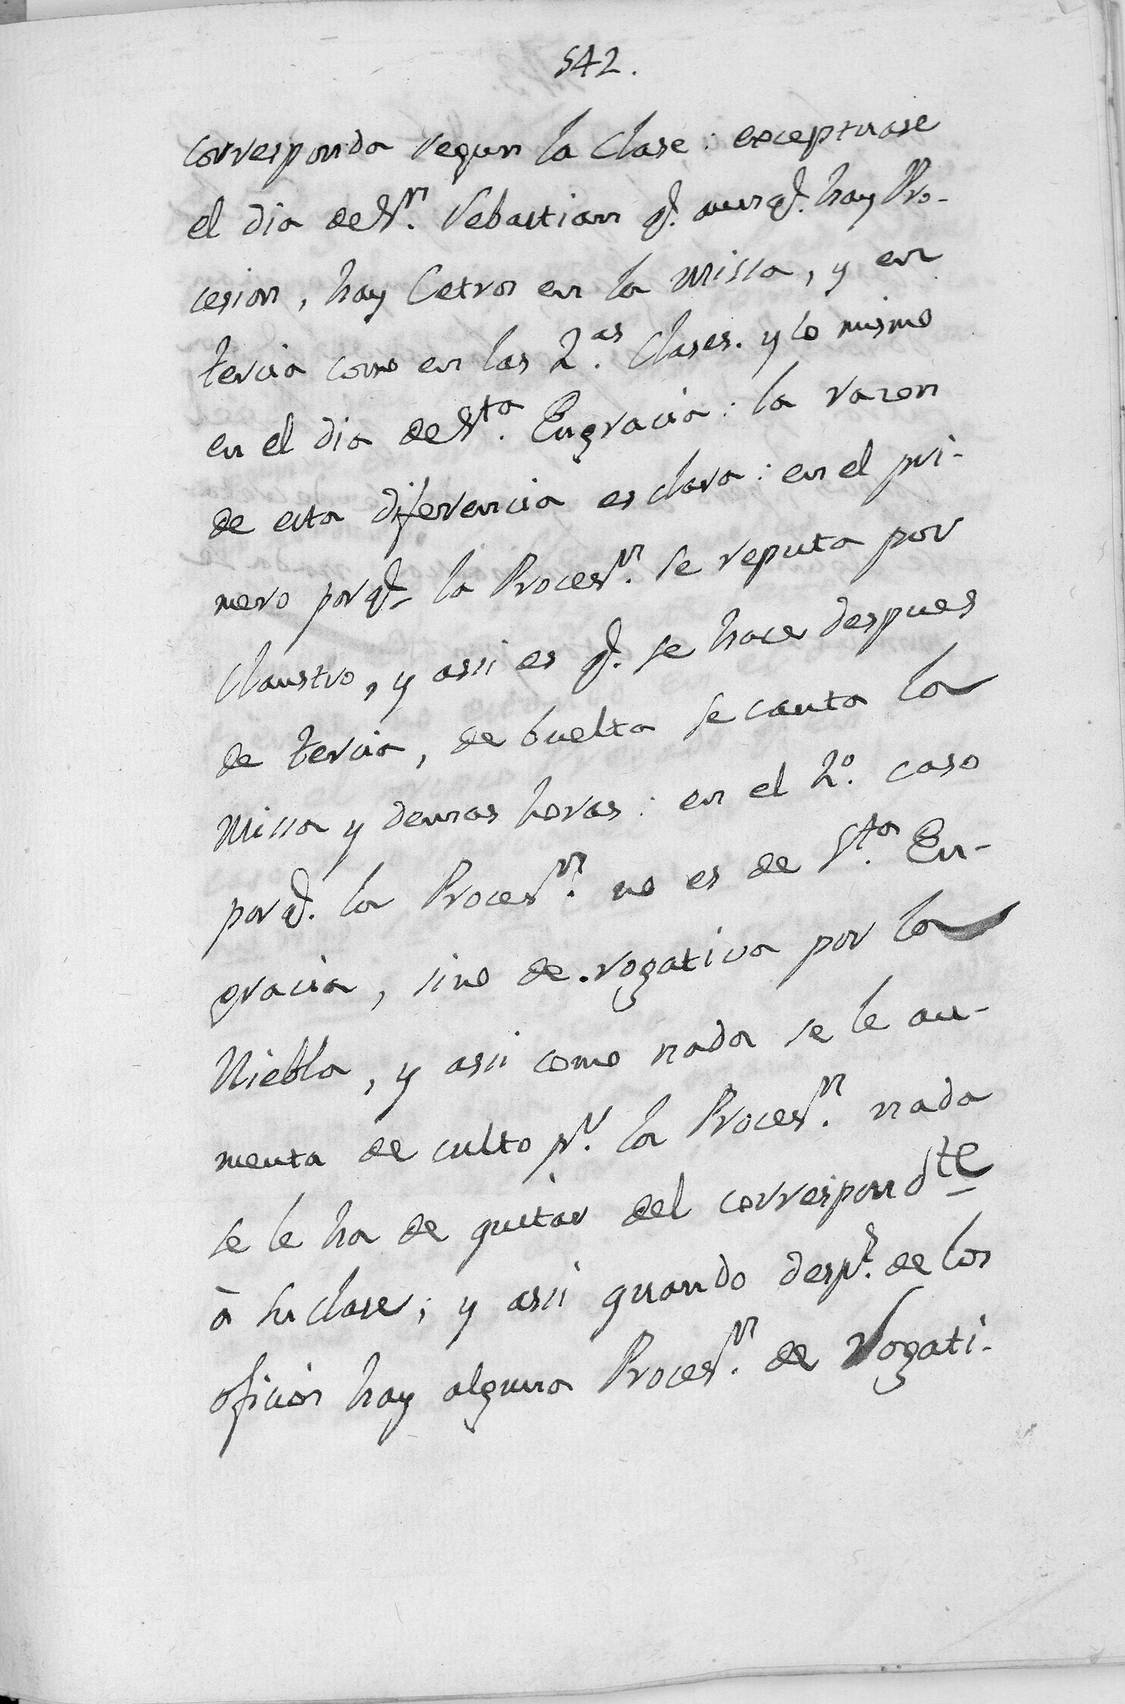 542.
corresponda segun la Clase: exceptuase
el dia de Sn. Sebastian q. aunq. hay Pro-
cesion, hay Cetros en la Missa, y en
tercia como en las 2.as Clases. y lo mismo
en el dia de Sta. Engracia: la razon
de esta diferencia es clara: en el pri-
mero porq. la Procesn. se reputa por
Claustro, y assi es q. se hace despues
de tercia, de buelta se canta la
Missa y demas horas: en el 2.o caso
porq. la Procesn. no es de Sta. En-
gracia, sino de rogativa por la
Niebla, y assi como nada se le au-
menta de culto pr. la Procesn. nada
se le ha de quitar del correspondte
à su clase; y assi quando desps. de los
oficios hay alguna Procesn. de Rogati-